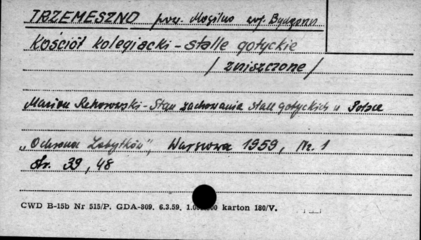 TRZEMESZNO pow. Mogilno woj. Bydgoszcz
Kościół kolegiacki - stalle gotyckie
/ zniszczone /
Marian Rehorowski - Stan zachowania stall gotyckich w Polsce
„Ochrona Zabytków", Warszawa 1959, Nr. 1
str. 39, 48
CWD B-15b Nr 515/P. GDA-809. 6.3.59. karton 180/V.